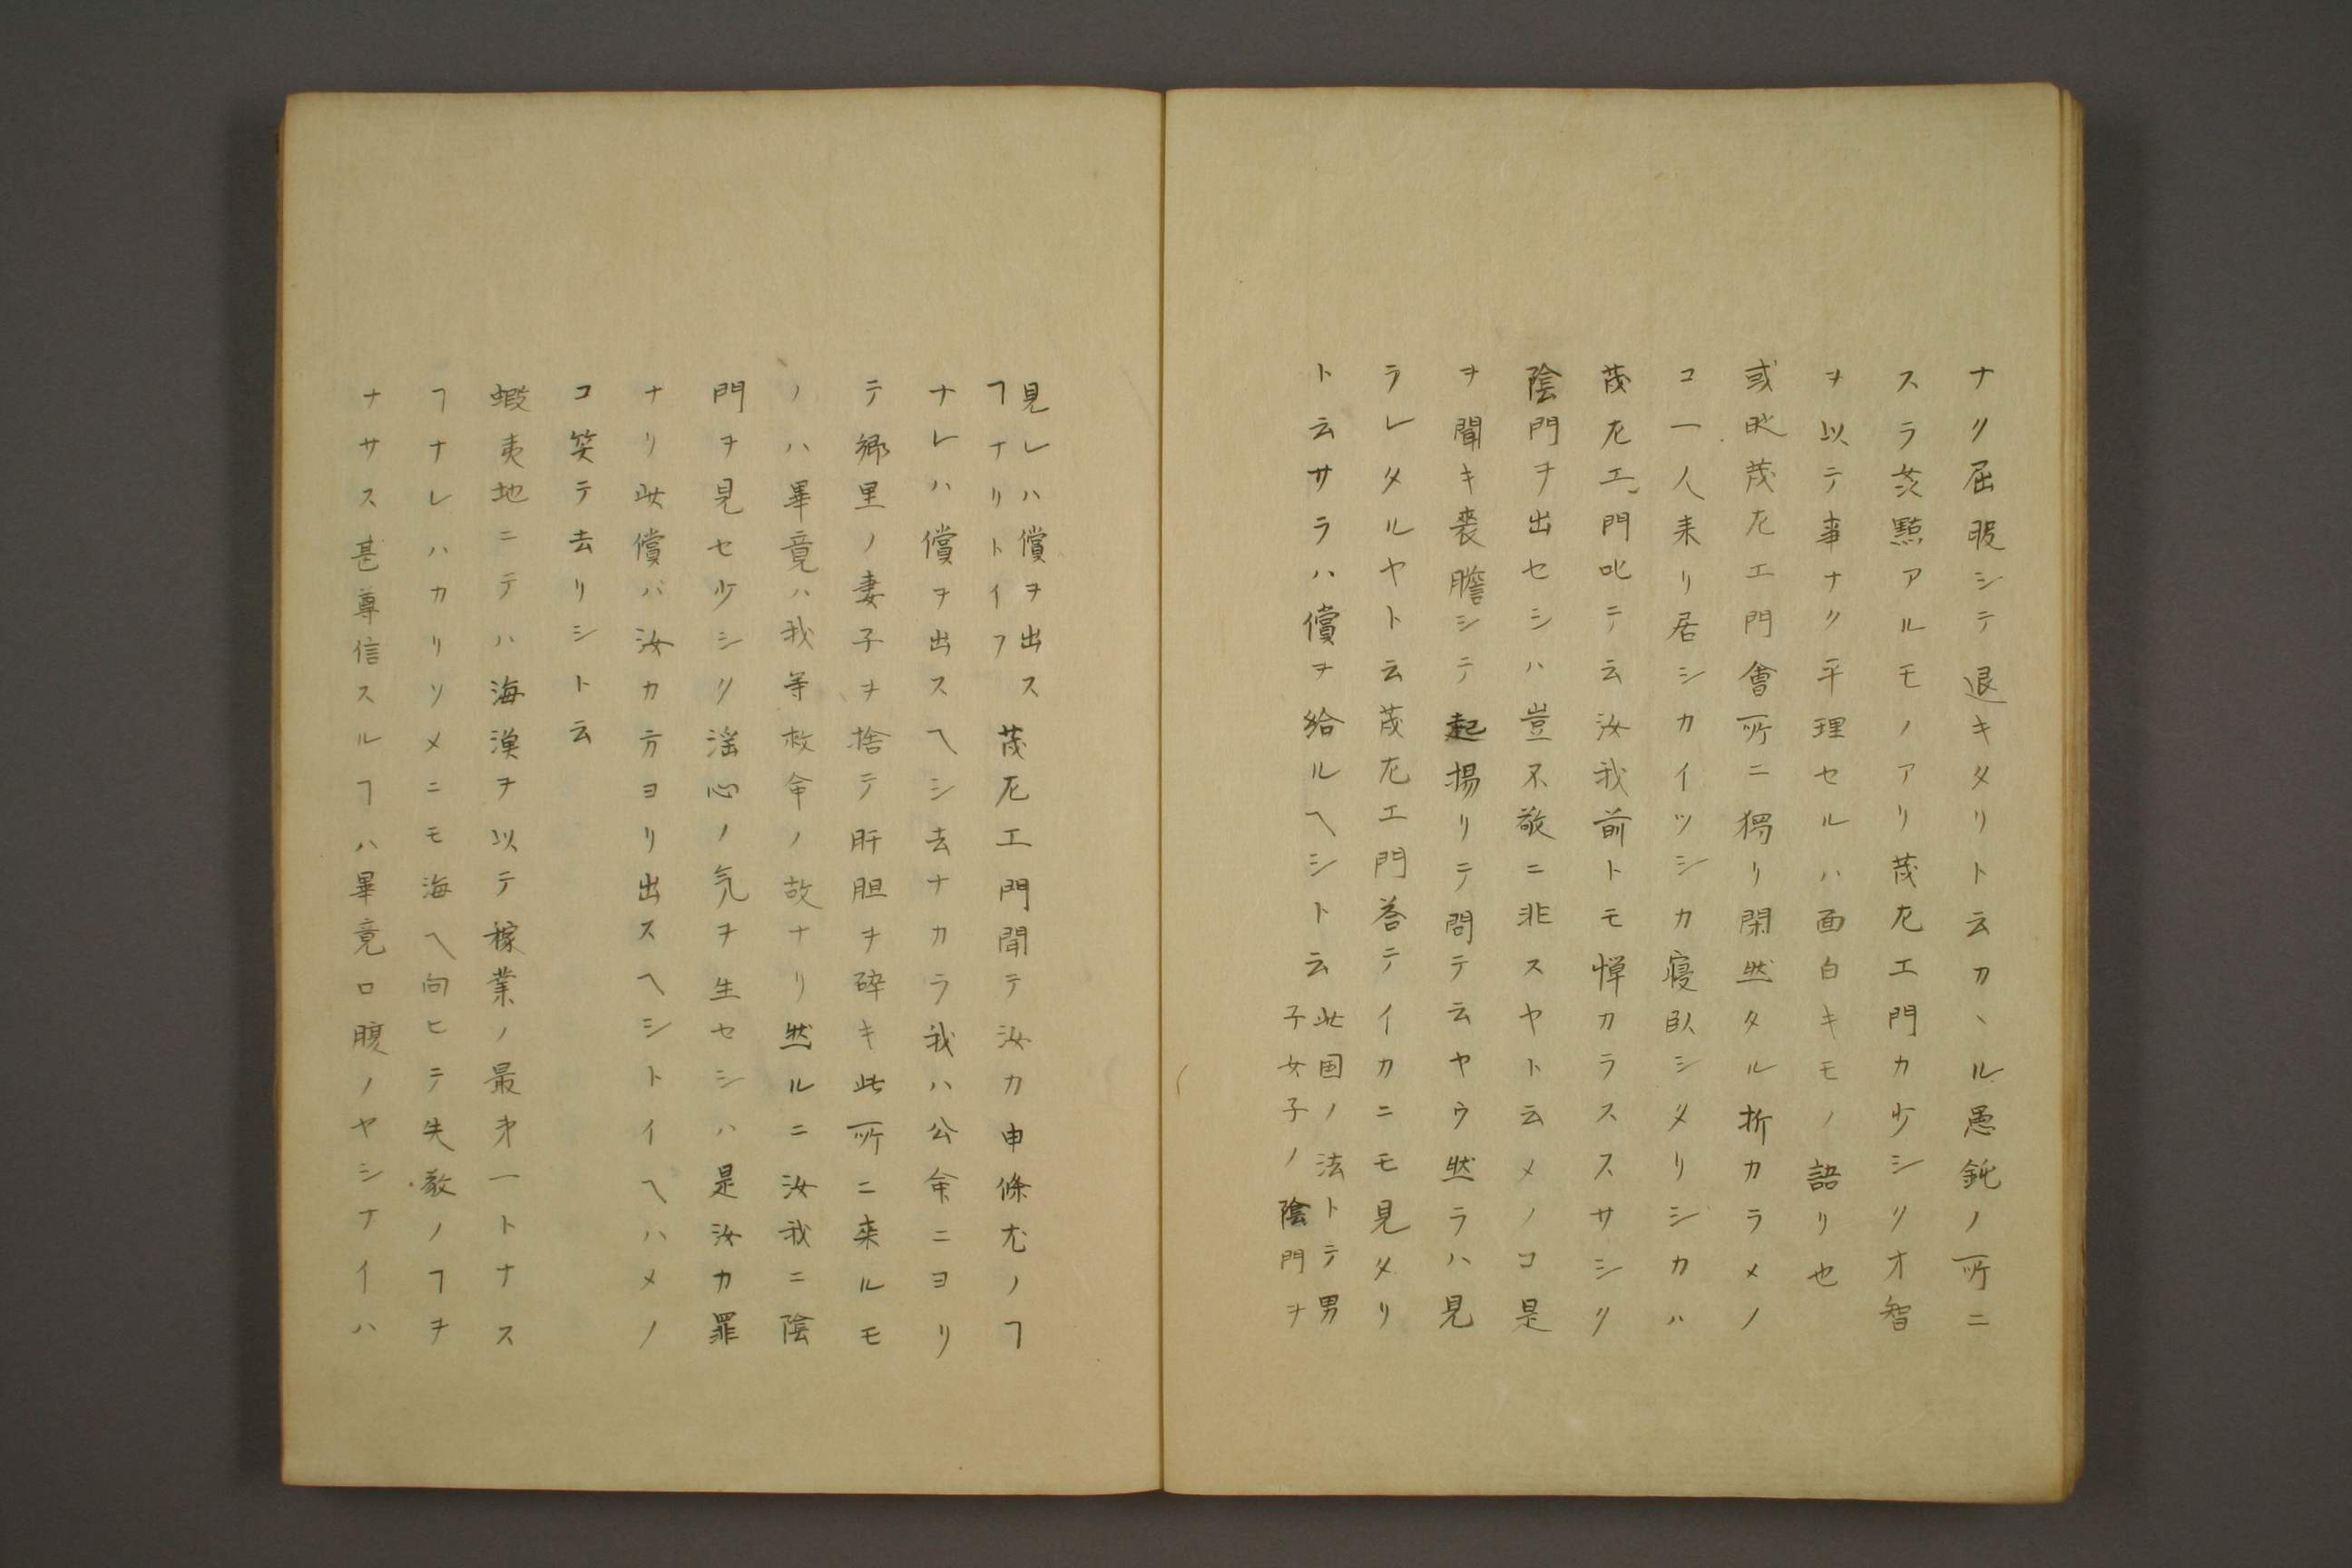 ナク屈服シテ退キタリト云カヽル愚鈍ノ所ニ
スラ茨點アルモノアリ茂尤エ門カ少シク才智
ヲ以テ事ナク平理セルハ面白キモノ語リ也
或昒茂尤エ門會所ニ獨リ閑然タル折カラメノ
コ一人来リ居シカイツシカ寝臥シタリシカハ
茂尤エ門叱テ云汝我前トモ憚カラススサシク
陰門ヲ出セシハ豈不敬ニ非スヤト云メノコ是
ヲ聞キ喪膽シテ起揚リテ問テ云ヤウ然ラハ見
ラレタルヤト云茂尤エ門答テイカニモ見タリ
ト云サラハ償ヲ給ルヘシト云
此国ノ法トテ男
子女子ノ陰門ヲ
見レハ償ヲ出ス
ヿナリトイフ
茂尤エ門聞テ汝カ申條尤ノヿ
ナレハ償ヲ出スヘシ去ナカラ我ハ公命ニヨリ
テ郷里ノ妻子ヲ捨テ肝胆ヲ碎キ此所ニ来ルモ
ノハ畢竟ハ我等救命ノ故ナリ然ルニ汝我ニ陰
門ヲ見セ少シク淫心ノ気ヲ生セシハ是汝カ罪
ナリ此償バ汝カ方ヨリ出スヘシトイヘハメノ
コ笑テ去リシト云
蝦夷地ニテハ海漁ヲ以テ稼業ノ最才一トナス
ヿナレハカリソメニモ海ヘ向ヒテ失敬ノヿヲ
ナサス甚尊信スルヿハ畢竟口腹ノヤシナイハ